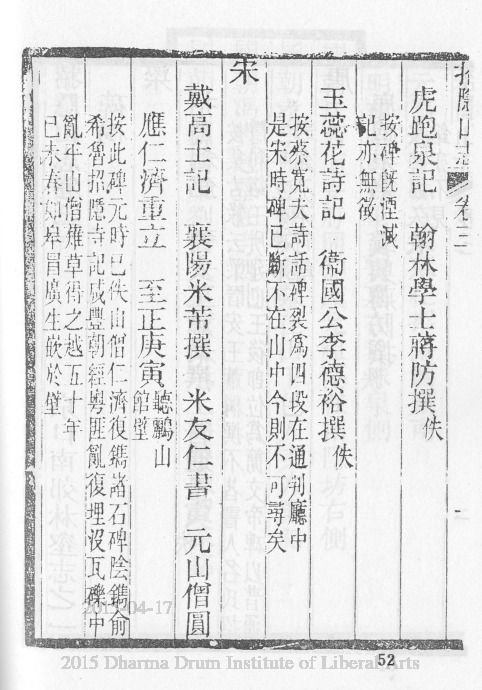 招隱山志 卷三
虎跑泉記 翰林學士蔣防撰 佚
按碑旣湮滅
記亦無徵
玉蕊花詩記 衞國公李德裕撰 佚
按蔡寬夫詩話碑裂爲四段在通判廳中
是宋時碑已斷不在山中今則不可尋矣
宋
戴高士記 襄陽米芾撰 米友仁書 元山僧圓
應仁濟重立 至正庚寅 聽鸝山
館壁
按此碑元時已佚山僧仁濟復鐫諸石碑陰鐫俞
希魯招隱寺記咸豐朝經粵匪亂復埋沒瓦礫中
亂平山僧薙草得之越五十年
己未春如皋冒廣生嵌於壁
2015-04-17
52
2015 Dharma Drum Institute of Liberal Arts